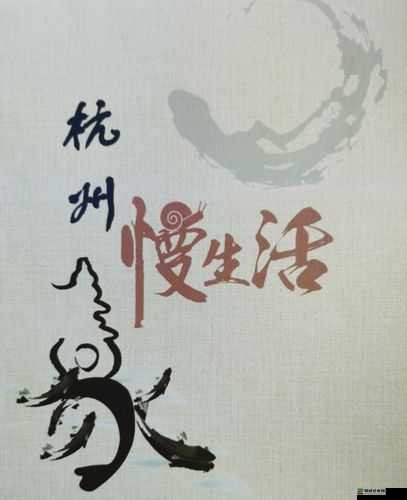 杭州
慢生活